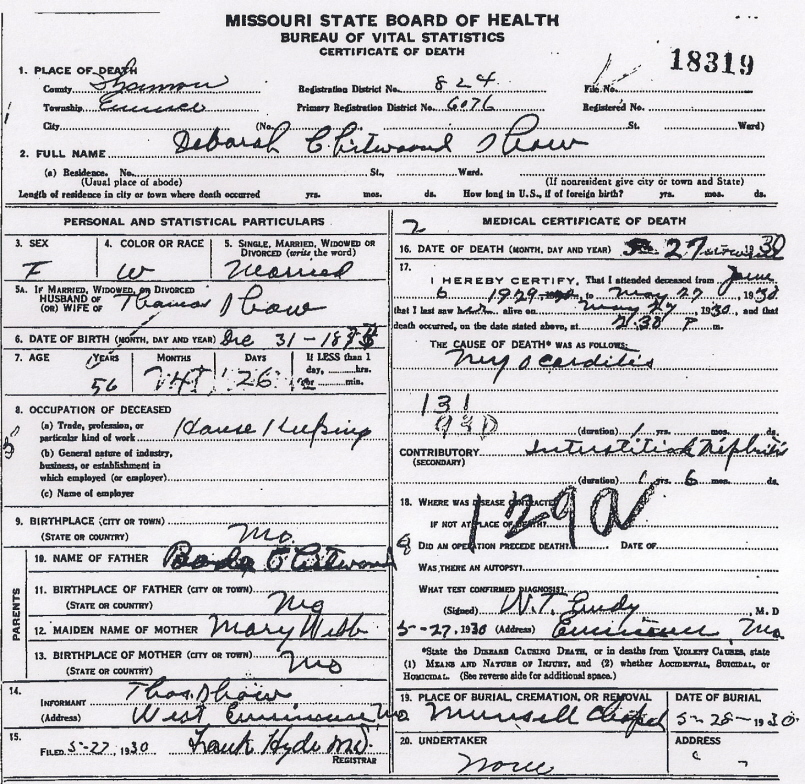 MISSOURI STATE BOARD OF HEALTH
BUREAU OF VITAL STATISTICS
CERTIFICATE OF DEATH
18319
1. PLACE OF DEATH
County Shannon Registration District No. 824 File No.
Township Eminence Primary Registration District No. 6076 Registered No.
City (No. St. Ward)
2. FULL NAME Deborah Chitwood
(a) Residence. No. St., Ward.
(Usual place of abode) (If nonresident give city or town and State)
Length of residence in city or town where death occurred yrs. mos. ds. How long in U.S., if of foreign birth? yrs. mos. ds.
PERSONAL AND STATISTICAL PARTICULARS
3. SEX 4. COLOR OR RACE 5. SINGLE, MARRIED, WIDOWED OR
DIVORCED (write the word)
F W Married
5A. IF MARRIED, WIDOWED, OR DIVORCED
HUSBAND OF
(OR) WIFE OF Thomas
6. DATE OF BIRTH (MONTH, DAY AND YEAR) Dec 31 -
7. AGE YEARS MONTHS DAYS If LESS than 1
day, hrs.
56 26 or min.
8. OCCUPATION OF DECEASED
(a) Trade, profession, or
particular kind of work House Keeping
(b) General nature of industry,
business, or establishment in
which employed (or employer)
(c) Name of employer
9. BIRTHPLACE (CITY OR TOWN)
(STATE OR COUNTRY) Mo.
PARENTS
10. NAME OF FATHER Chitwood
11. BIRTHPLACE OF FATHER (CITY OR TOWN)
(STATE OR COUNTRY) Mo
12. MAIDEN NAME OF MOTHER Mary Webb
13. BIRTHPLACE OF MOTHER (CITY OR TOWN)
(STATE OR COUNTRY) Mo
14. INFORMANT Thos.
(Address) West Eminence Mo
15. FILED 5-27, 1930 Frank Hyde M.D.
REGISTRAR
2 MEDICAL CERTIFICATE OF DEATH
16. DATE OF DEATH (MONTH, DAY AND YEAR) 27 1930
17. I HEREBY CERTIFY, That I attended deceased from June
6 1929, to May 27, 1930
that I last saw her alive on May 27, 1930, and that
death occurred, on the date stated above, at 2:30 P m.
THE CAUSE OF DEATH* WAS AS FOLLOWS:
Myocarditis
131
93D
(duration) 1 yrs. mos. ds.
CONTRIBUTORY Interstitial Nephritis
(SECONDARY)
(duration) 1 yrs. 6 mos. ds.
18. WHERE WAS DISEASE CONTRACTED
IF NOT AT PLACE OF DEATH?
129a
DID AN OPERATION PRECEDE DEATH? DATE OF
WAS THERE AN AUTOPSY?
WHAT TEST CONFIRMED DIAGNOSIS?
(Signed) W.T. Eudy, M. D
5-27, 1930 (Address) Eminence Mo
*State the DISEASE CAUSING DEATH, or in deaths from VIOLENT CAUSES, state
(1) MEANS AND NATURE OF INJURY, and (2) whether ACCIDENTAL, SUICIDAL, or
HOMICIDAL. (See reverse side for additional space.)
19. PLACE OF BURIAL, CREMATION, OR REMOVAL DATE OF BURIAL
Munsell Chapel 5-28-1930
20. UNDERTAKER ADDRESS
None